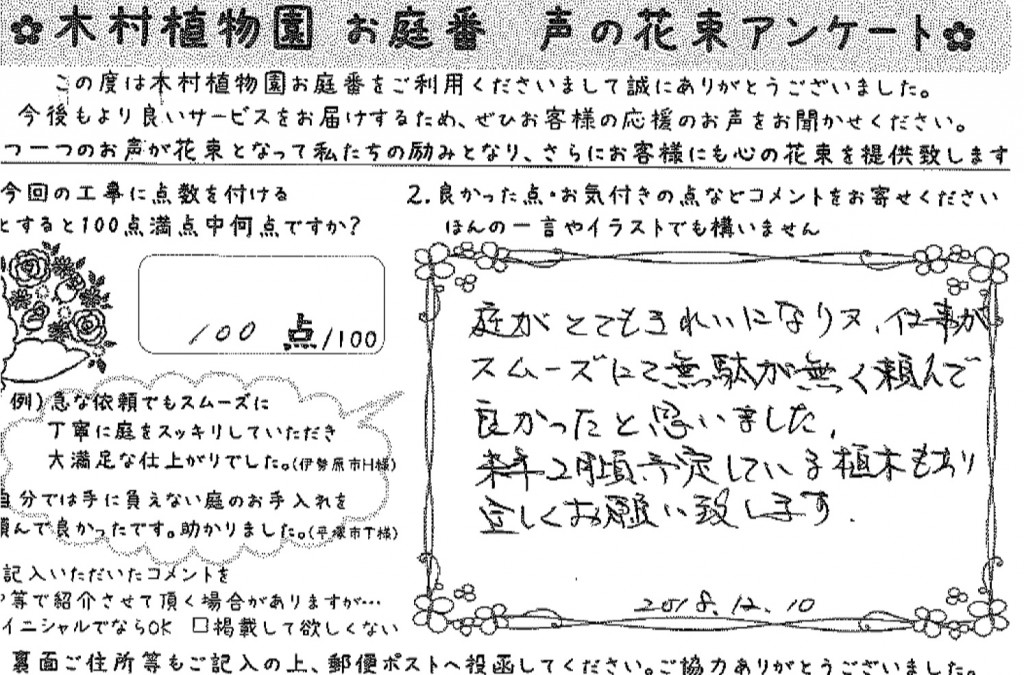 木村植物園 お庭番 声の花束アンケート
この度は木村植物園お庭番をご利用くださいまして誠にありがとうございました。
今後もより良いサービスをお届けするため、ぜひお客様の応援のお声をお聞かせください。
つ一つのお声が花束となって私たちの励みとなり、さらにお客様にも心の花束を提供致します
今回の工事に点数を付ける
とすると100点満点中何点ですか?
100 点/100
例)急な依頼でもスムーズに
丁寧に庭をスッキリしていただき
大満足な仕上がりでした。(伊勢原市H様)
自分では手に負えない庭のお手入れを
頼んで良かったです。助かりました。(平塚市T様)
記入いただいたコメントを
等で紹介させて頂く場合がありますが…
イニシャルでならOK □掲載して欲しくない
2.良かった点・お気付きの点などコメントをお寄せください
ほんの一言やイラストでも構いません
庭がとてもきれいになり又、仕事が
スムーズにて無駄が無く頼んで
良かったと思いました。
来年2月頃予定している植木もあり
宜しくお願い致します.
2018.12.10
裏面ご住所等もご記入の上、郵便ポストへ投函してください。ご協力ありがとうございました。